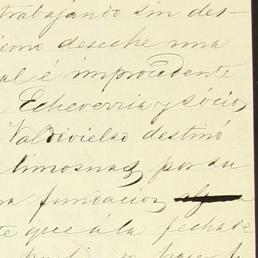 trabajando sin des-
deseche una
al é improcedente
Echeverria y sócio,
Valdivielso destinó
limosnas por su
a fundacion
te que á la fecha de